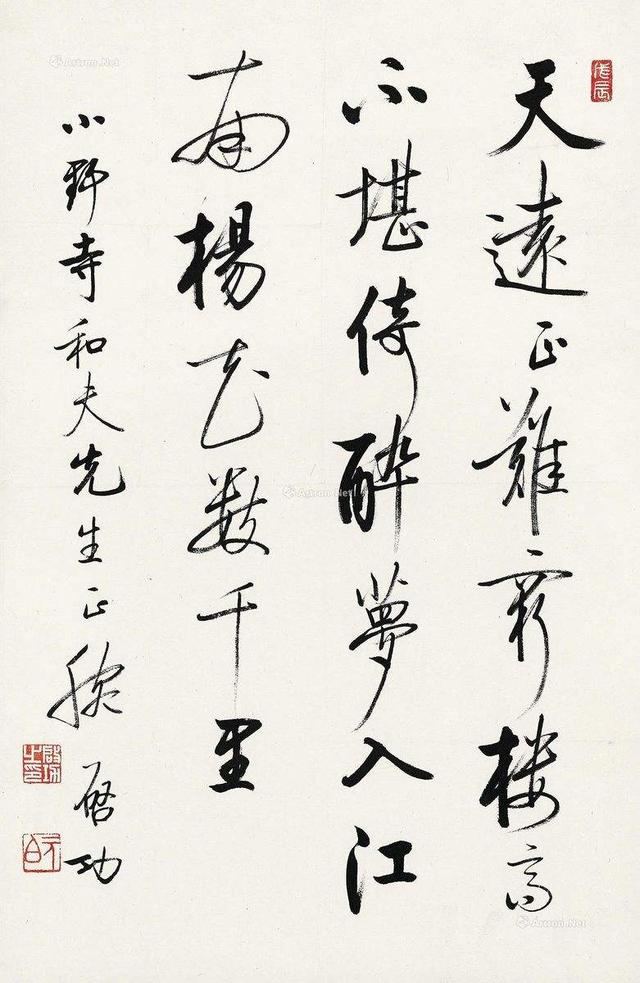 天遠正難窮楼高
不堪倚醉夢入江
南楊花数千里
小野寺和夫先生正腕
启功
戊辰
启功之印
元白
Artron.Net
Artron.Net
Artron.Net